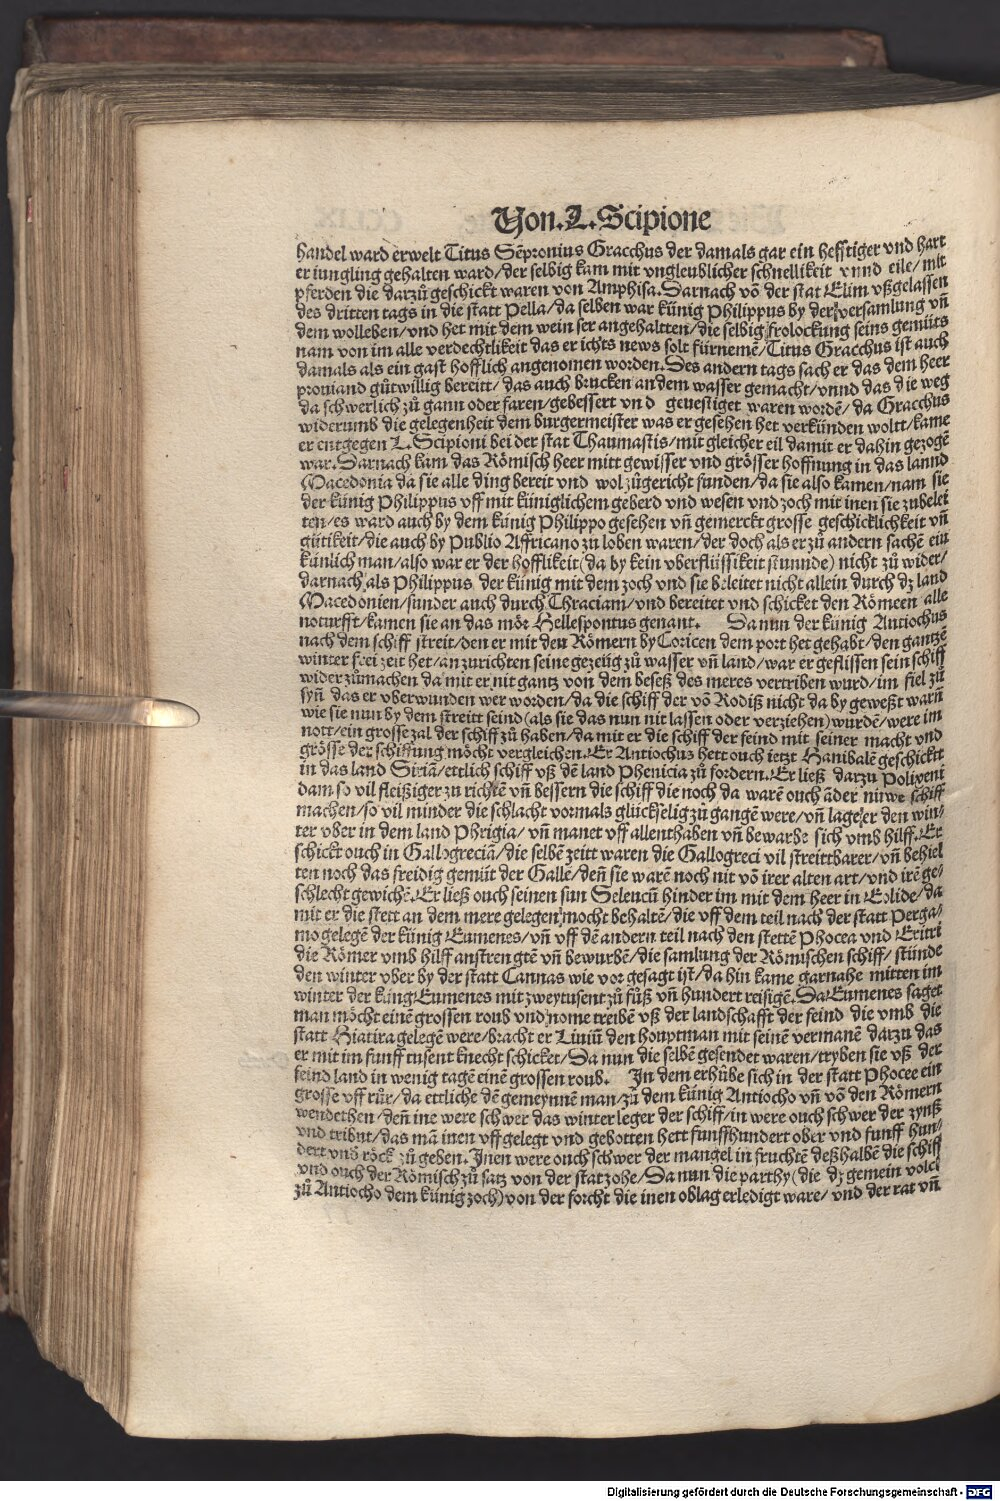 Von. L. Scipione
handel ward erwelt Titus Sēpronius Gracchus der damals gar ein hefftiger vnd hart
er iungling gehalten ward/der selbig kam mit vngleublicher schnellikeit vnnd eile/mit
pferden die darzů geschickt waren von Amphisa. Darnach vō der stat Elim vßgelassen
des dritten tags in die statt Pella/da selben war künig Philippus by der versamlung vn̄
dem wolleben/vnd het mit dem wein ser angehaltten/die selbig frolockung seins gemüts
nam von im alle verdechtlikeit das er ichts news solt fürnemē/Titus Gracchus ist auch
damals als ein gast hofflich angenomen worden. Des andern tags sach er das dem heer
prouiand gůtwillig bereitt/das auch brucken an dem wasser gemacht/vnnd das die weg
da schwerlich zů gann oder faren/gebessert vnd geuestiget waren wordē/da Gracchus
widerumb die gelegenheit dem burgermeister was er gesehen het verkünden woltt/kame
er entgegen L. Scipioni bei der stat Thaumastis/mit gleicher eil damit er dahin gezogē
war. Darnach kam das Römisch heer mitt gewisser vnd grösser hoffnung in das lannd
Macedonia da sie alle ding bereit vnd wol zůgericht funden/da sie also kamen/nam sie
der künig Philippus vff mit küniglichem geberd vnd wesen vnd zoch mit inen sie zubelei
ten/es ward auch by dem künig Philippo gesehen vn̄ gemerckt grosse geschicklichkeit vn̄
gütikeit/die auch by Publio Affricano zu loben waren/der doch als er zů andern sachē ein
künlich man/also war er der hofflikeit (da by kein vberflüssikeit stunnde) nicht zů wider/
darnach als Philippus der künig mit dem zoch vnd sie beleitet nicht allein durch dz land
Macedonien/sunder auch durch Thraciam/vnd bereitet vnd schicket den Römeen alle
noturfft/kamen sie an das mör Hellespontus genant. Da nun der künig Antiochus
nach dem schiff streit/den er mit den Römern by Coricen dem port het gehabt/den gantzē
winter frei zeit het/an zurichten seine gezeüg zů wasser vn̄ land/war er geflissen sein schiff
wider zůmachen da mit er nit gantz von dem beseß des meres vertriben wurd/im fiel zů
syn̄ das er vberwunden wer worden/da die schiff der vō Rodiß nicht da by geweßt warn̄
wie sie nun by dem streitt seind (als sie das nun nit lassen oder verziehen) wurdē/were im
nott/ein grosse zal der schiff zů haben/da mit er die schiff der feind mit seiner macht vnd
grösse der schiffung möcht vergleichen. Er Antiochus hett ouch ietzt Hanibalē geschickt
in das land Siriā/ettlich schiff vß dē land Phenicia zů fordern. Er ließ darzu Polixeni
dam so vil fleißiger zu richtē vn̄ bessern die schiff die noch da warē ouch āder nüwe schiff
machen/so vil minder die schlacht vormals glückselig zů gangē were/vn̄ lageter den win⸗
ter vber in dem land Phrigia/vn̄ manet vff allenthaben vn̄ bewarbe sich vmb hilff. Er
schickt ouch in Gallogreciā/die selbē zeitt waren die Gallogreci vil streittbarer/vn̄ behiel
ten noch das freidig gemüt der Galle/den̄ sie warē noch nit vō irer alten art/vnd irē ge⸗
schlecht gewichē. Er ließ ouch seinen sun Seleucū hinder im mit dem heer in Eolide/da
mit er die stett an dem mere gelegen mocht behaltē/die vff dem teil nach der statt Perga⸗
mo gelegē der künig Eumenes/vn̄ vff dē andern teil nach den stettē Phocea vnd Eritri
die Römer vmb hilff anstrengtē vn̄ bewurbē/die samlung der Römischen schiff/stünde
den winter vber by der statt Cannas wie vor gesagt ist/da hin kame garnahe mitten im
winter der künig Eumenes mit zweytusent zů fůß vn̄ hundert reisigē. Da Eumenes saget
man möcht einē grossen roub vnd nome treibē vß der landschafft der feind die vmb die
statt Hiatira gelegē were/bracht er Liuiū den houptman mit seinē vermanē darzu das
er mit im funff tusent knecht schicket/Da nun die selbē gesendet waren/tryben sie vß der
feind land in wenig tagē einē grossen roub. In dem erhůbe sich in der statt Phocee ein
grosse vff růr/da ettliche dē gemeynnē man/zů dem künig Antiocho vn̄ vō den Römern
wendethen/den̄ ine were schwer das winter leger der schiff/in were ouch schwer der zynß
vnd tribut/das mā inen vff gelegt vnd gebotten hett funffhundert ober vnd funff hun⸗
dert vnd röck zů geben. Inen were ouch schwer der mangel in fruchtē deßhalbē die schiff
vnd ouch der Römisch zů satz von der stat zohe/Da nun die parthy (die dz gemein volck
zů Antiocho dem künig zoch) von der forcht die inen oblag erledigt ware/vnd der rat vn̄
Digitalisierung gefördert durch die Deutsche Forschungsgemeinschaft - DFG